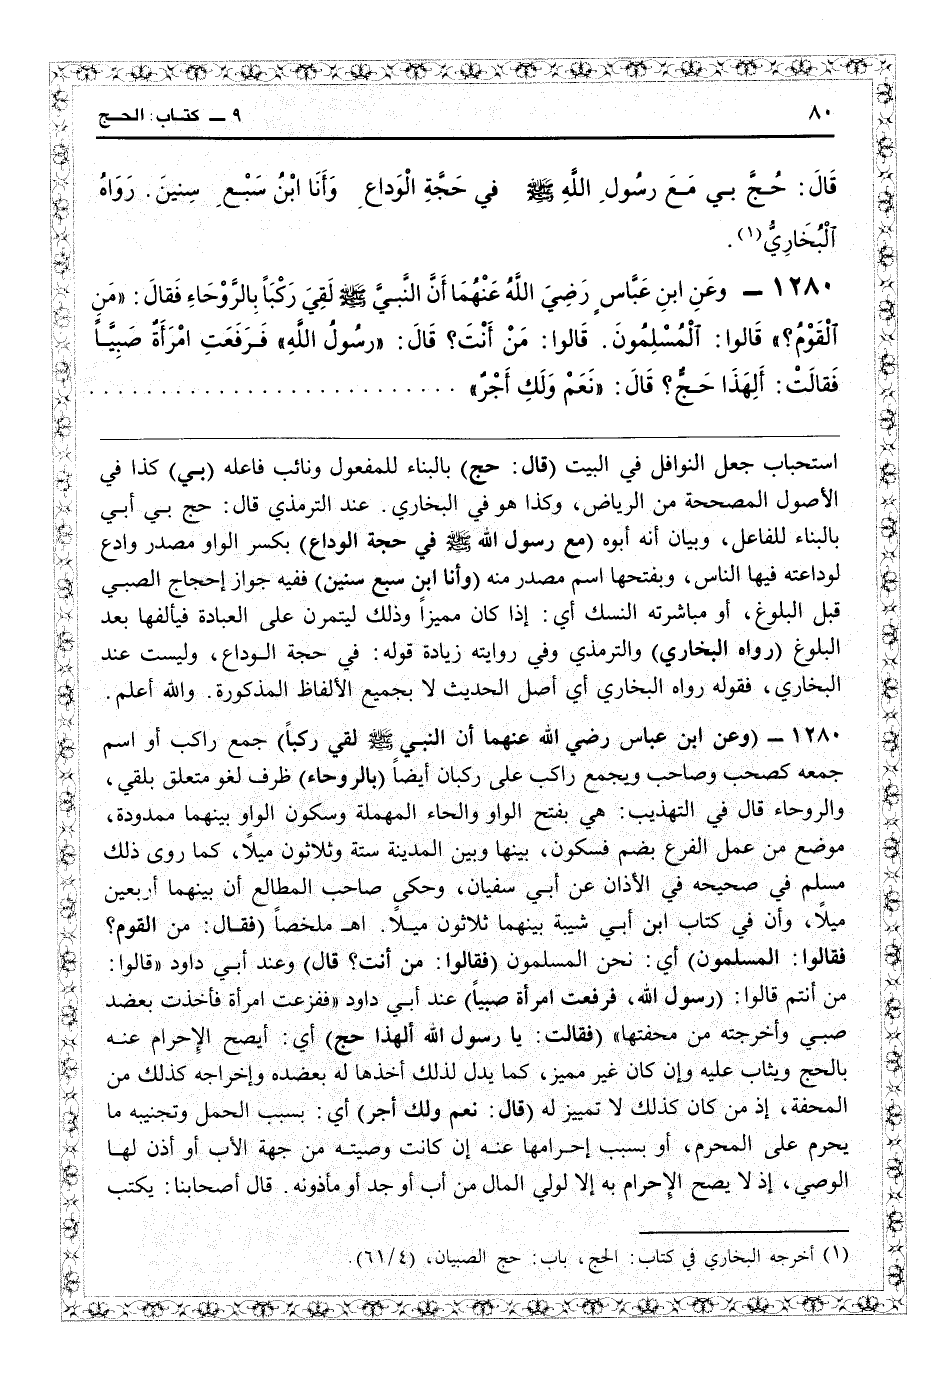 ٨٠
٩ ــ كتـاب: الحـج
قَالَ: حُـجَّ بـي مَـعَ رسُولِ اللَّهِ ﷺ في حَجَّةِ الْوَداعِ وَأَنَا ابْنُ سَبْـعِ سِنِينَ. رَوَاهُ
ٱلْبُخَارِيُّ(١).
١٢٨٠ ــ وعَنِ ابنِ عَبَّاسٍ رَضِيَ اللَّهُ عَنْهُمَا أَنَّ النَّبِيَّ ﷺ لَقِيَ رَكْباً بِالرَّوْحَاءِ فَقالَ: «مَنِ
ٱلْقَوْمُ؟» قَالوا: ٱلْمُسْلِمُونَ. قَالوا: مَنْ أَنْتَ؟ قَالَ: «رسُولُ اللَّهِ» فَـرَفَعَتِ امْرَأَةٌ صَبِيَّـاً
فَقالَتْ: أَلِهَذَا حَـجٌّ؟ قَالَ: «نَعَمْ وَلَكِ أَجْرٌ» . . . . . . . . . . . . . . . . . . . . . . . . . . . .
استحباب جعل النوافل في البيت (قال: حج) بالبناء للمفعول ونائب فاعله (بـي) كذا في
الأصول المصححة من الرياض، وكذا هو في البخاري. عند الترمذي قال: حج بـي أبـي
بالبناء للفاعل، وبيان أنه أبوه (مع رسول الله ﷺ في حجة الوداع) بكسر الواو مصدر وادع
لوداعته فيها الناس، وبفتحها اسم مصدر منه (وأنا ابن سبع سنين) ففيه جواز إحجاج الصبـي
قبل البلوغ، أو مباشرته النسك أي: إذا كان مميزاً وذلك ليتمرن على العبادة فيألفها بعد
البلوغ (رواه البخاري) والترمذي وفي روايته زيادة قوله: في حجة الـوداع، وليست عند
البخاري، فقوله رواه البخاري أي أصل الحديث لا بجميع الألفاظ المذكورة. والله أعلم.
١٢٨٠ ــ (وعن ابن عباس رضي الله عنهما أن النبـي ﷺ لقي ركباً) جمع راكب أو اسم
جمعه كصحب وصاحب ويجمع راكب على ركبان أيضاً (بالروحاء) ظرف لغو متعلق بلقي،
والروحاء قال في التهذيب: هي بفتح الواو والحاء المهملة وسكون الواو بينهما ممدودة،
موضع من عمل الفرع بضم فسكون، بينها وبين المدينة ستة وثلاثون ميلاً، كما روى ذلك
مسلم في صحيحه في الأذان عن أبـي سفيان، وحكى صاحب المطالع أن بينهما أربعين
ميلاً، وأن في كتاب ابن أبـي شيبة بينهما ثلاثون ميـلاً. اهـ ملخصاً (فقـال: من القوم؟
فقالوا: المسلمون) أي: نحن المسلمون (فقالوا: من أنت؟ قال) وعند أبـي داود «قالوا:
من أنتم قالوا: (رسول الله، فرفعت امرأة صبياً) عند أبـي داود «ففزعت امرأة فأخذت بعضد
صبـي وأخرجته من محفتها» (فقالت: يا رسول الله ألهذا حج) أي: أيصح الإِحرام عنـه
بالحج ويثاب عليه وإن كان غير مميز، كما يدل لذلك أخذها له بعضده وإخراجه كذلك من
المحفة، إذ من كان كذلك لا تمييز له (قال: نعم ولك أجر) أي: بسبب الحمل وتجنيبه ما
يحرم على المحرم، أو بسبب إحـرامها عنـه إن كانت وصيتـه من جهة الأب أو أذن لهـا
الوصي، إذ لا يصح الإِحرام به إلا لولي المال من أب أو جد أو مأذونه. قال أصحابنا: يكتب
(١) أخرجه البخاري في كتاب: الحج، باب: حج الصبيان، (٦١/٤).